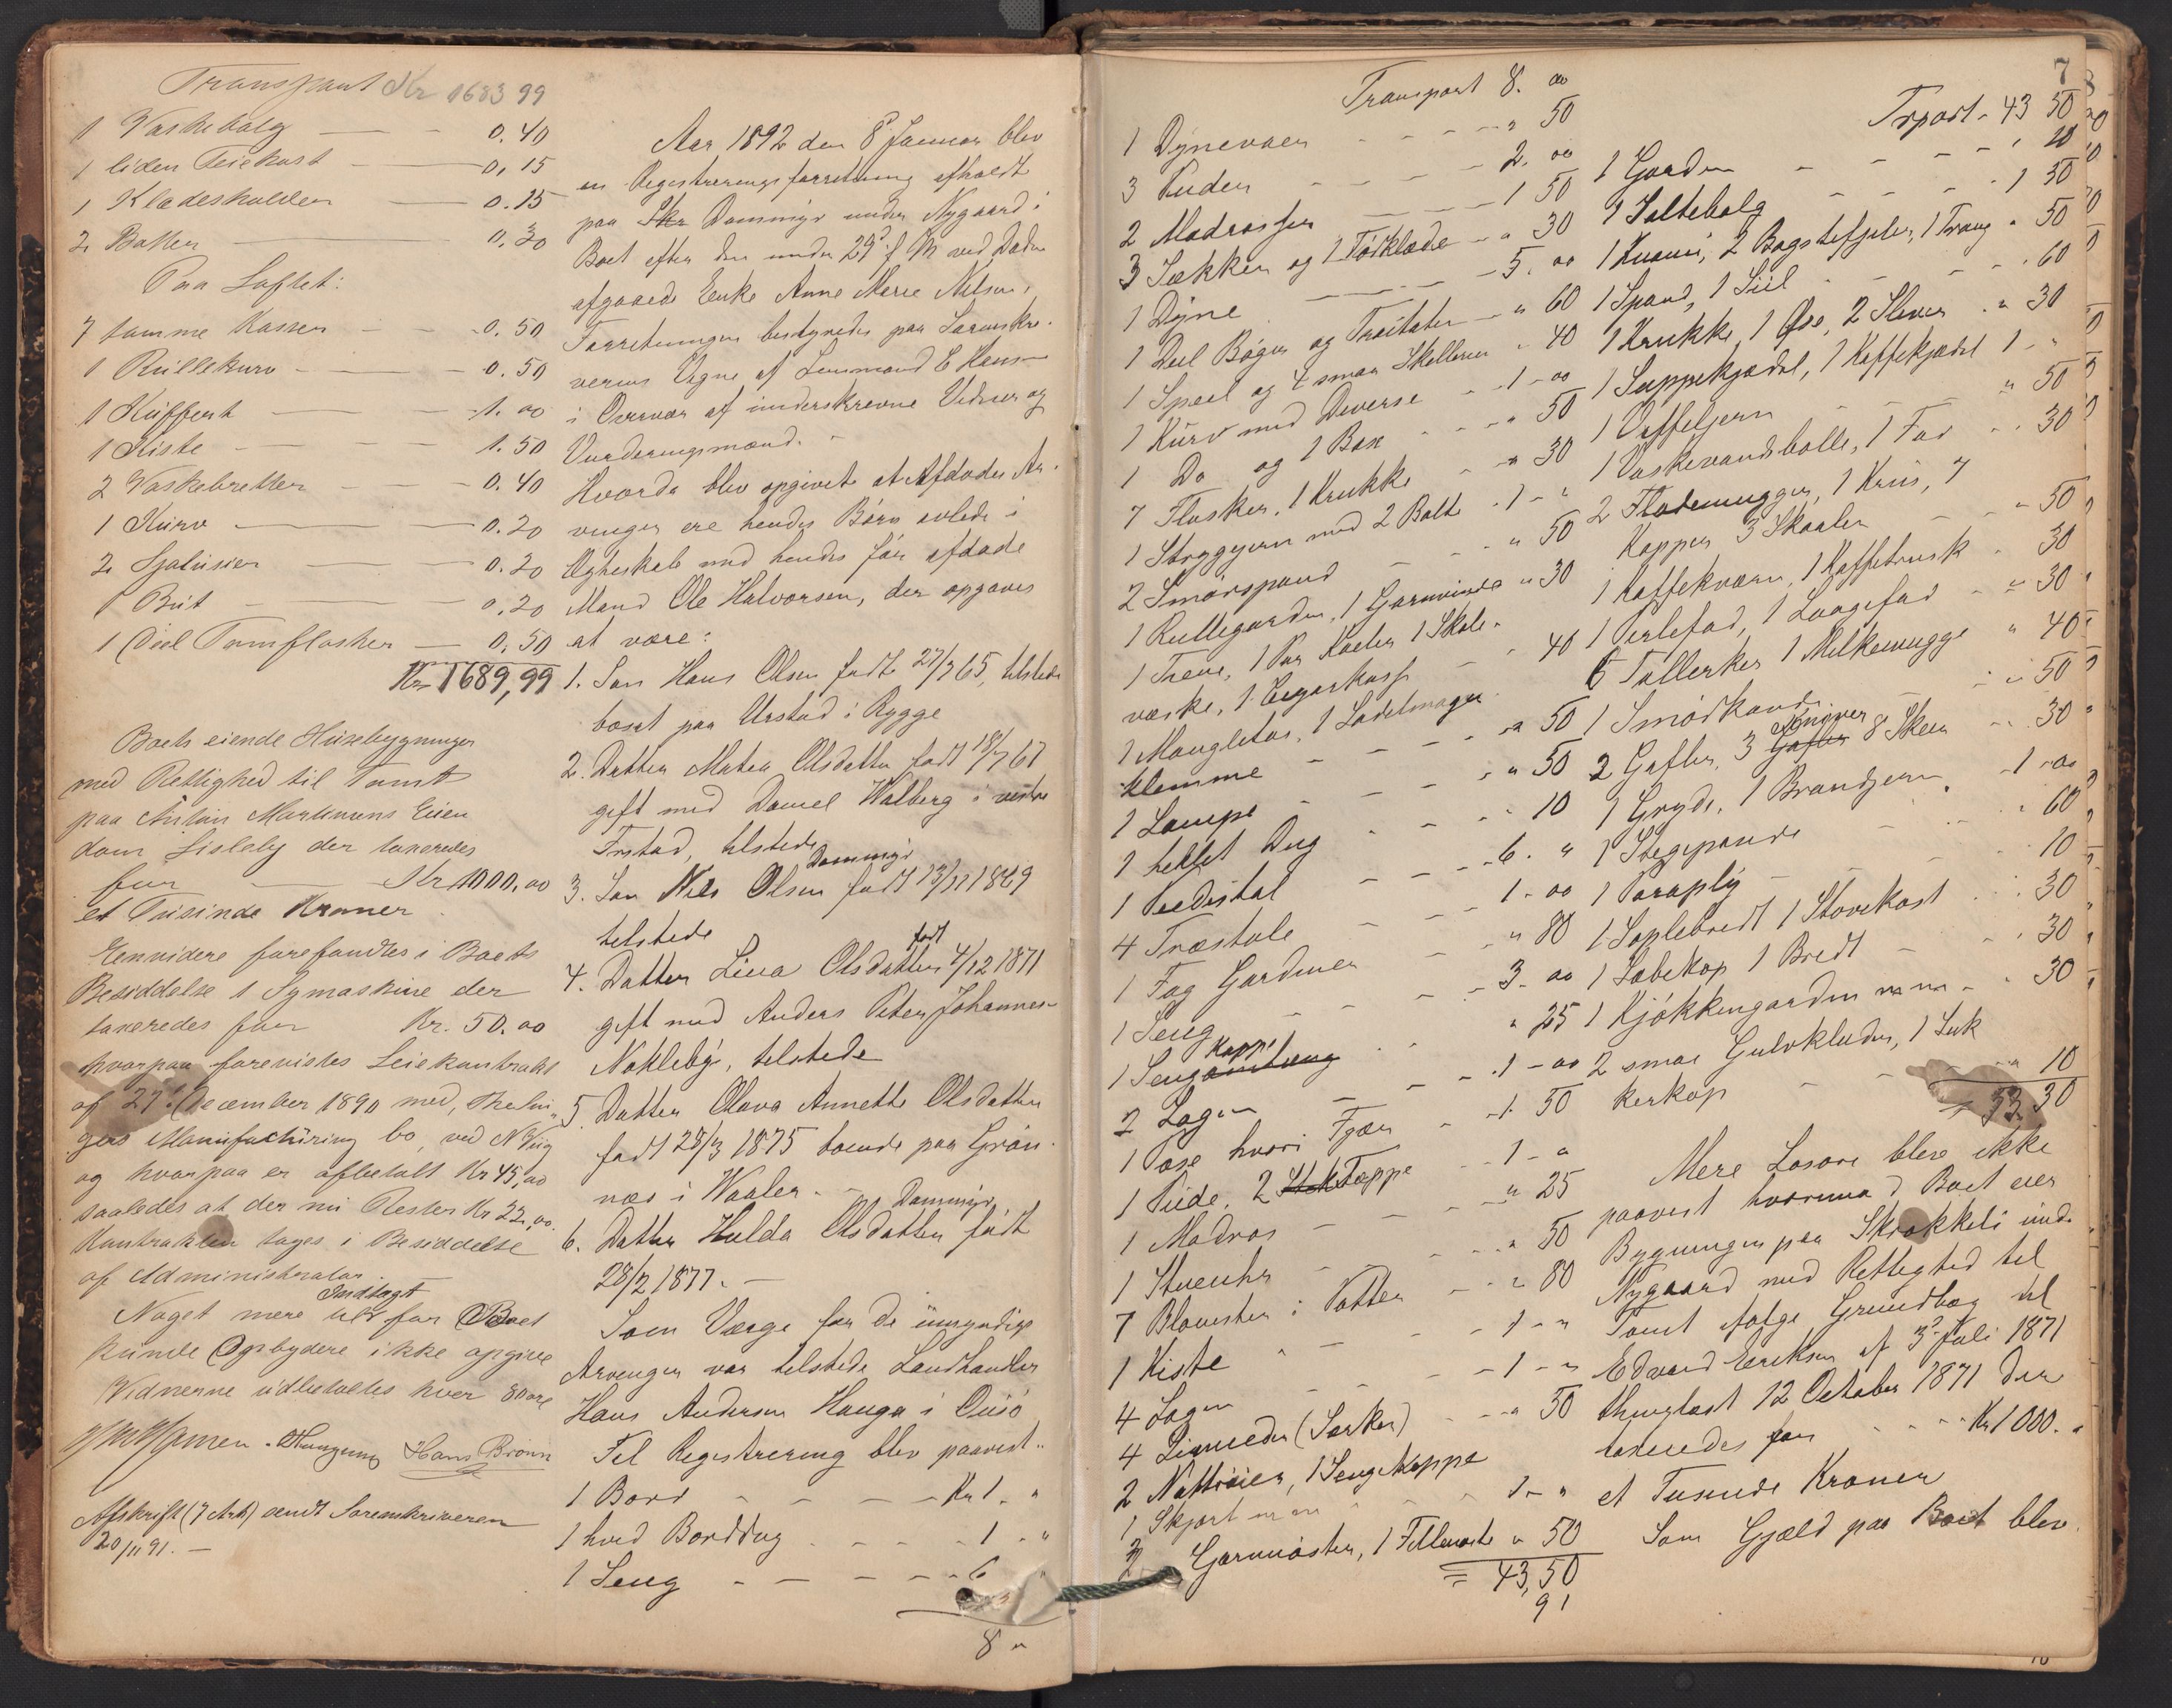 Transport Kr 1683 99
1 Vaskebalg — 0.40
1 liden Feiekost — 0,15
1 Klædesholder — 0.15
2 Bøtter — 0,30
Paa Loftet:
7 tomme Kasser — 0.50
1 Rullekurv — 0.50
1 Kuffert — 1.00
1 Kiste — 1.50
2 Vaskebretter — 0.40
1 Kurv — 0.20
2 Sjalusier — 0.20
1 — 0.20
1 Deel Tomflasker — 0,50
Kr 1689,99
Boets eiende Husebygninger
med Rettighed til Tomt
paa Anton Martinsens Eien
dom Lisleby der taxeredes
for — Kr 1000,00
et Tusinde Kroner
Henvidere forefandtes i Boets
Besiddelse 1 Symaskine der
taxeredes for Kr. 50.00
hvorpaa forevistes Leiekontrakt
af 27d December 1890 med
Manufacturing Co, ved
og hvorpaa er afbetalt Kr 45,00
saaledes at der nu Rester Kr 22,00.
Kontrakten tages i Besiddelse
af Administrator.
Indtægt
Noget mere for Boet
kunde Opbydere ikke opgive
Vidnerne udbetaltes hver 80 øre
Hans Brønn
Afskrift (7 Ark) sendt Sorenskriveren
20/11 91. —
Aar 1892 den 8d Januar blev
en Registreringsforretning afholdt
paa Skr Dammyr under Nygaard i
Boet efter den under 29d f M ved Døden
afgaaede Enke Anne Marie Nilsen,
Forretningen bestyredes paa Sorenskri-
verens Vegne af Lensmand E Hans—
i Overvær af underskrevne Vidner og
Vurderingsmænd. —
Hvorda blev opgivet at Afdødes Ar-
vinger ere hendes Børn avlede i
Ægteskab med hendes før afdøde
Mand Ole Halvorsen, der opgaves
at være:
1. Søn Hans Olsen født 27/7 65, tilstede
bosat paa Urstad i Rygge
2. Datter Matea Olsdatter født 18/7 67
gift med Daniel Walberg i vestre
Frstad, tilstede
Dammyr
3. Søn Nils Olsen født 13/11 1869
tilstede
født
4. Datter Lina Olsdatter 4/12 1871
gift med Anders Peter Johannes-
Nokleby, tilstede
5. Datter Olava Annette Olsdatter
født 25/3 1875 boende paa Grøn-
næs i Waaler. —
Dammyr
6. Datter Hulda Olsdatter født
28/2 1877. —
Som Værge for de umyndige
Arvinger var tilstede Landhandler
Hans Andersen Hauga i Onsø
Til Registrering blev paavist:
1 Bord — Kr 1. "
1 hvid Borddug — 1. "
1 Seng — 6 "
8 "
Transport 8. 00
1 Dynevaer " 50
3 Puder 2. 00
2 Madrasser 1 50
3 Sækker og 1 Forklæde " 30
1 Dyne 5. 00
1 Deel Bøger og Traitater " 60
1 Speil og 4 smaa Skillerier " 40
1 Kurv med Diverse 1-00
1 Do og 1 Box " 50
7 Flasker, 1 Krukke " 30
1 Strygejern med 2 Bolte 1 - "
2 Smørspand " 50
1 Rullegardin, 1 Garnvinde " 30
1 Trene, 1 Par Karder 1 Skole-
væske, 1 Cigarkasse 40
1 Mangletøi, 1 Sadelmager
klemme " 50
1 Lampe " 50
1 heklet Dug " 10
1 Pedistal 6. "
4 Træstole 1-00
1 Fag Gardiner " 80
1 Seng 3. 00
kappe
1 Sengomhæng " 25
2 Lagen 1-00
1 Pose hvori Fjær 1 50
1 Pude, 2 Tæppe 1 - "
1 Madras " 25
1 Stueuhr " 50
7 Blomster i Potter " 80
1 Kiste 1 - "
4 Lagen 1 - "
4 Linneder (Særker) " 50
2 Nattrøier, 1 Sengekappe
1 Skjørt m m 1 - "
2 Garnnøster, 1 Filleneste " 50
= 43,50
91
7
Trport - 43 50
1 Gardin " 20
1 Saltebalg 1 30
1 Knavi, 2 Bagstefjeler, 1 Traug " 50
1 Spand, 1 Siil " 60
1 Krukke 1 Øse, 2 Slever " 30
1 Suppekjedel, 1 Kaffekjedel 1 - "
1 Vaffeljern " 50
1 Vaskevandsbolle, 1 Fad " 30
2 Flødemugger, 1 Krus, 7
Kopper 3 Skaaler " 50
1 Kaffekværn, 1 Kaffebrusk " 30
1 Perlefad, 1 Laagefad " 30
6 Tallerker 1 Melkemugge " 40
1 Smørkande " 50
Kniver
2 Gafler, 3 Gafler 8 Skeer " 30
1 Gryde, 1 Brandjern 1-00
1 Stegepande " 60
1 Paraply " 10
1 Soplebredt 1 Stovekost " 30
1 Sæbekop 1 Bredt " 30
1 Kjøkkengardin m m " 30
2 smaa Gulvkluder, 1 Suk
kerkop " 10
= 53 30
Mere Løsøre blev ikke
paavist hvorimod Boet eier
Bygningen paa Skrakkeli unde
Nygaard med Rettighed til
Tomt ifølge Grundbog til
Edvard Eriksen af 3d Juli 1871
thinglæst 12 October 1871 Der
taxeredes for Kr 1000. "
et Tusinde Kroner
Som Gjæld paa Boet blev